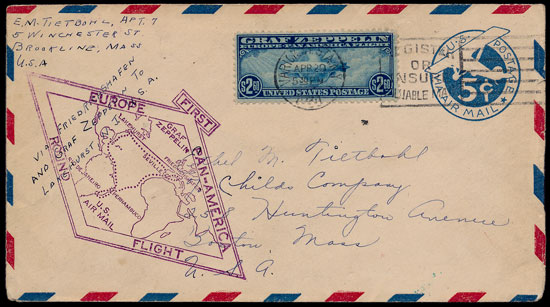 E.M. TIETBOHL, APT. 7
5 WINCHESTER ST
BROOKLINE, MASS
U.S.A
VIA FRIEDRICHSHAFEN
AND GRAF ZEPPELIN TO
LAKEHURST U.S.A.
GRAF ZEPPELIN
EUROPE-PAN AMERICA FLIGHT
$2.60 $2.60
UNITED STATES POSTAGE
APR 20
1930
REGISTER
OR
INSURE
VALUABLE
U.S. POSTAGE
5¢
VIA AIR MAIL
FIRST
EUROPE
PAN-AMERICA
ROUND
FLIGHT
GRAF ZEPPELIN
LAKEHURST
SEVILLE
RIO DE JANEIRO
PERNAMBUCO
U.S.
AIR MAIL
Ethel M. Tietbohl
Childs Company
Huntington Avenue
Boston Mass
U.S.A.